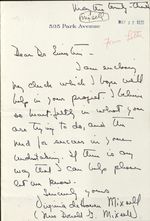 (Myself)
535 Park Avenue
MAY 12 1933
Dear Dr. Einstein -
I am enclosing
my check which I hope will
help in your project. I believe
so heartfeltly in what you
are trying to do, and the
need for success in your
undertaking. If this is any
way that I can help please
let me know.
Sincerely yours
Virginia Mixsell
(Mrs David G. Mixsell)